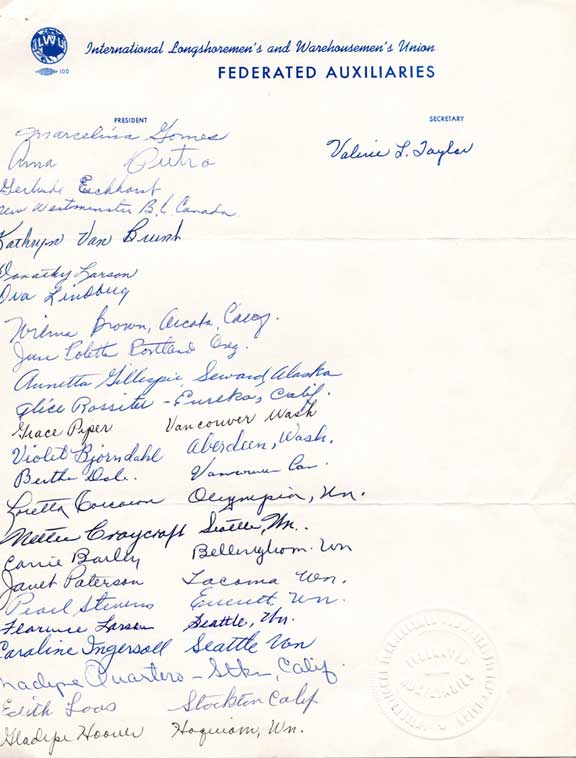 ILWU
100
International Longshoremen's and Warehousemen's Union
FEDERATED AUXILIARIES
PRESIDENT SECRETARY
Marcelina Gomes
Valerie L. Taylor
Anna Putro
Gertrude Eichhorst
New Westminster B.C. Canada
Kathryn Van Brunt
Dorothy Larson
Ova Lindberg
Wilma Brown, Arcata, Calif.
June Poletti Portland Ore.
Annetta Gillespie, Seward Alaska
Alice Rossiter - Eureka, Calif.
Grace Piper Vancouver Wash
Violet Bjorndahl Aberdeen, Wash.
Bertha Dale. Vancouver Can.
Loretta Olympia, Wn.
Craycraft Seattle, Wn.
Carrie Barley Bellingham. Wn
Janet Paterson Tacoma Wn.
Pearl Stevens Everett, Wn.
Florence Larson Seattle, Wn.
Caroline Ingersoll Seattle Wn
Quartero - Stkn, Calif.
Edith Loos Stockton Calif
Hoover Hoquiam, Wn.